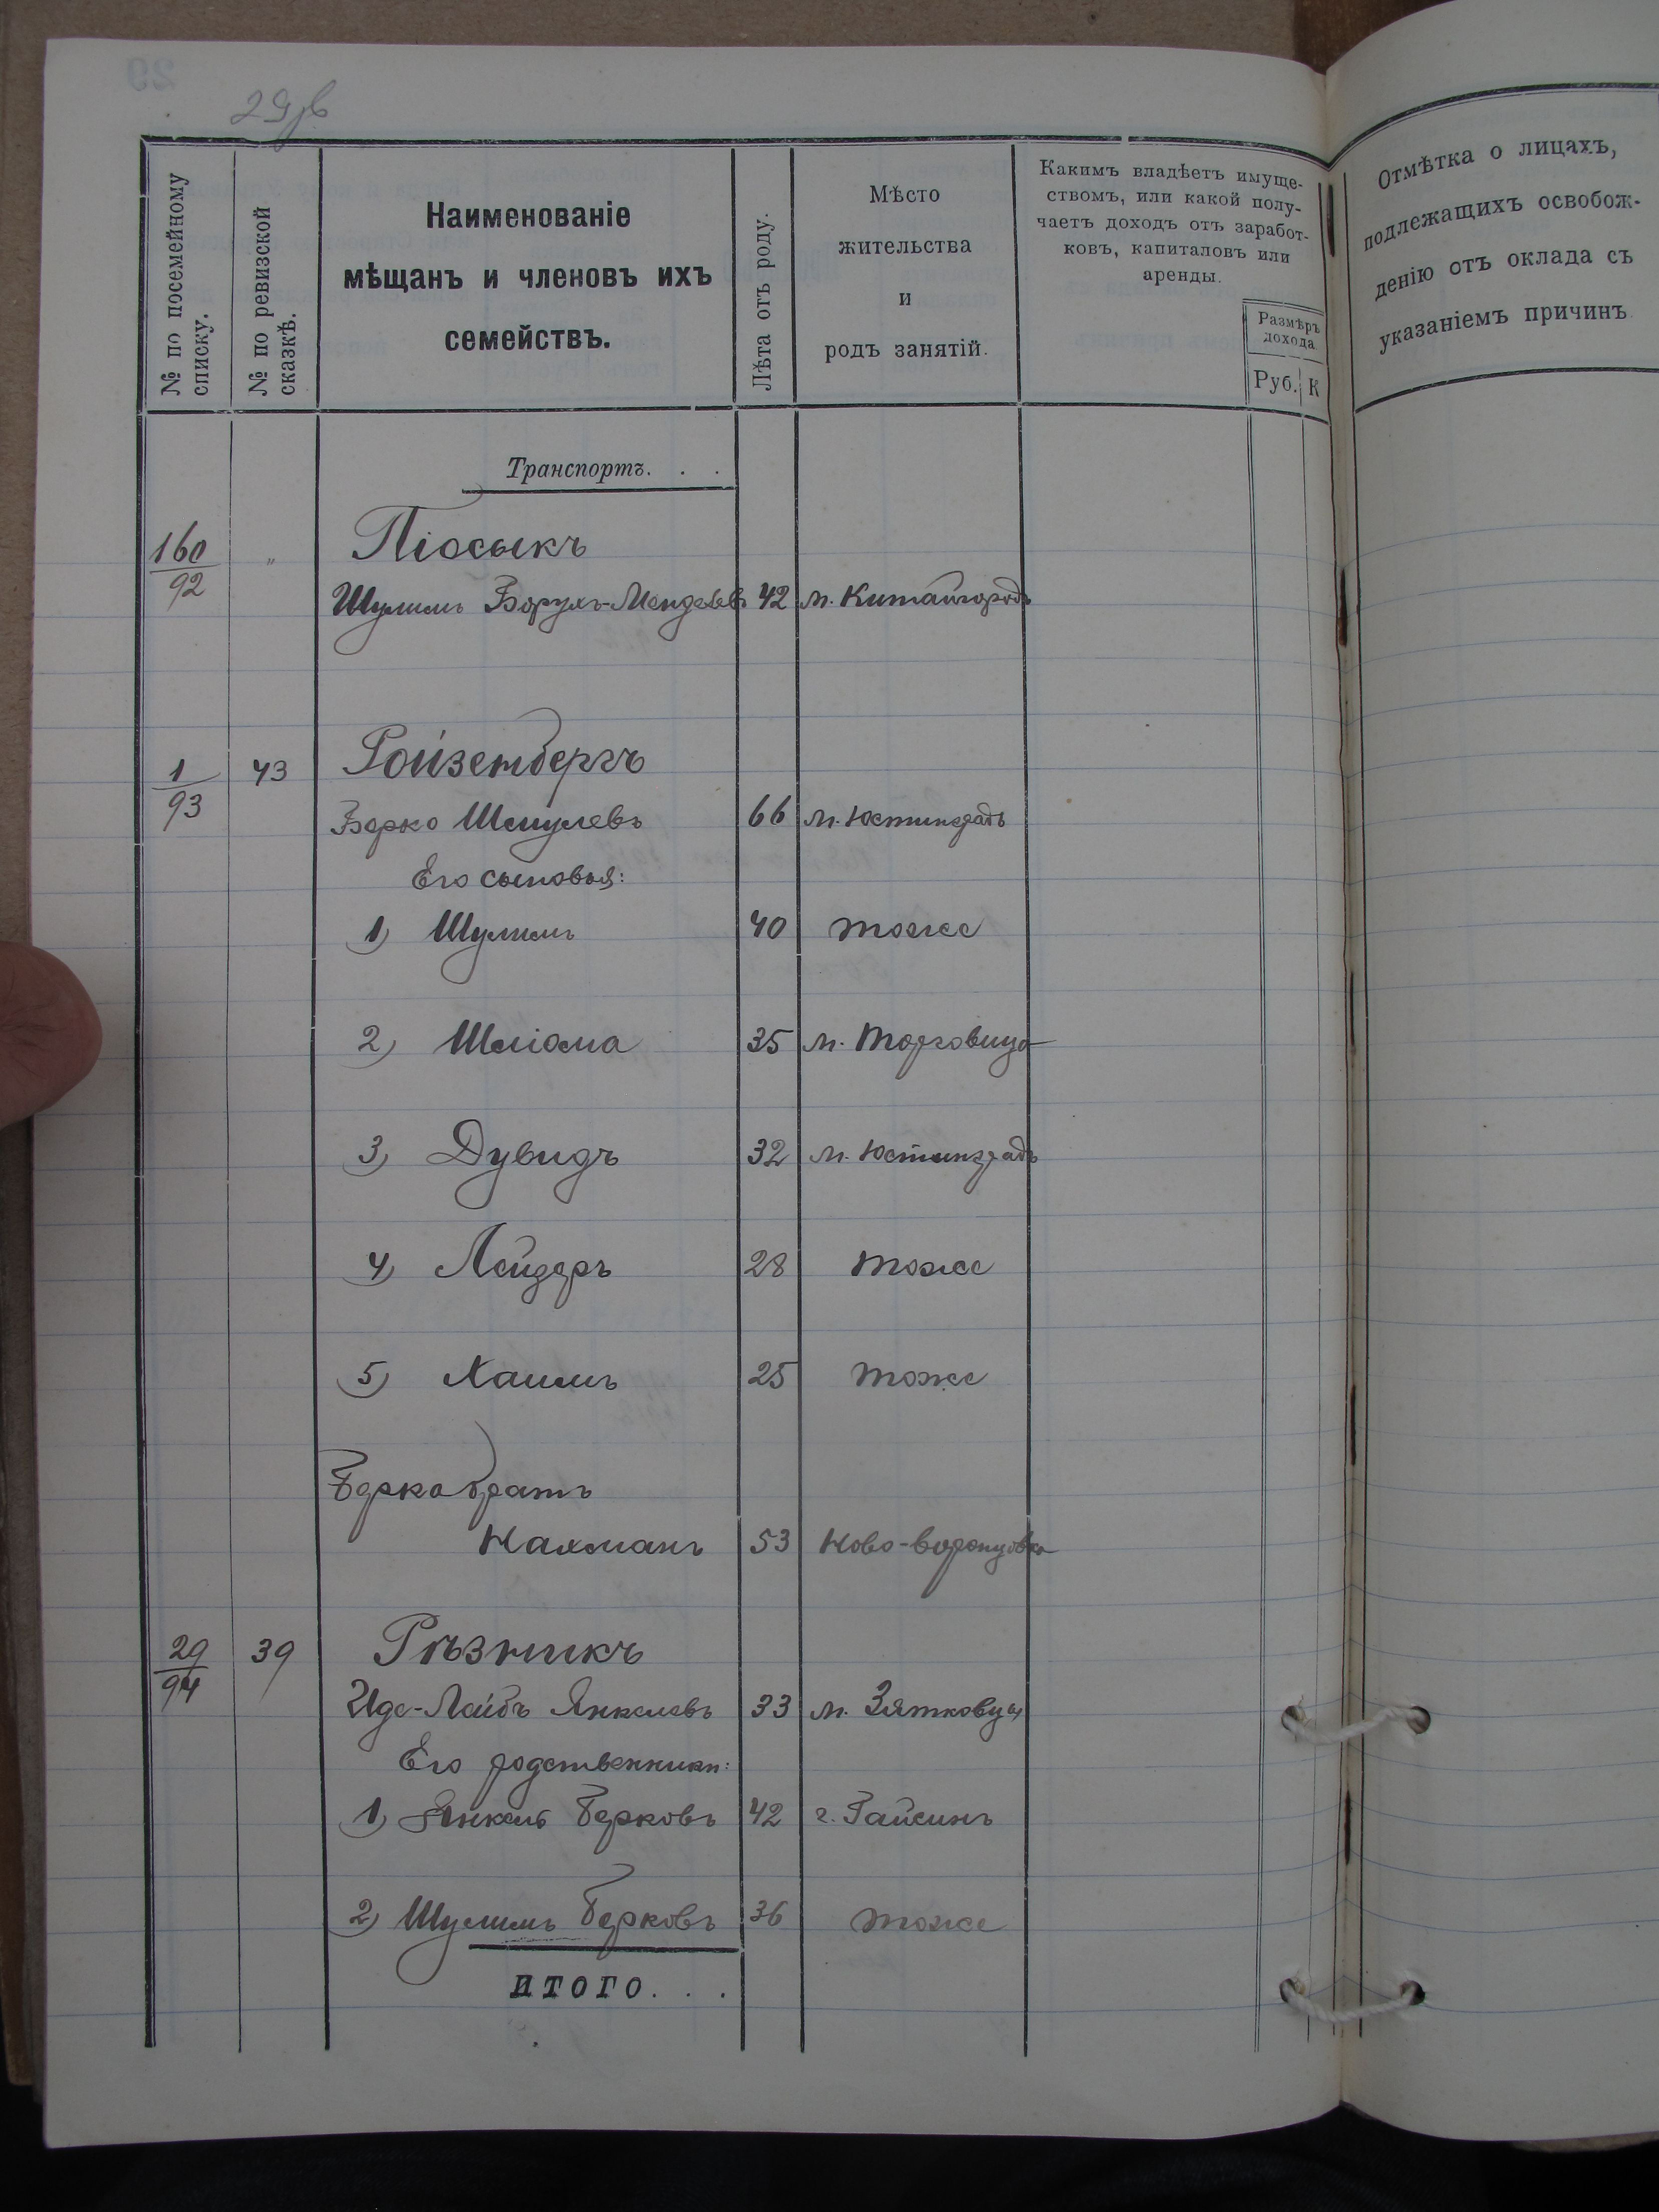 № по посемейному списку.
№ по ревизской сказкѣ.
Наименованіе
мѣщанъ и членовъ ихъ
семействъ.
Лѣта отъ роду.
Мѣсто
жительства
и
родъ занятій.
Какимъ владѣетъ имуще-
ствомъ, или какой полу-
чаетъ доходъ отъ заработ-
ковъ, капиталовъ или
аренды.
Размѣръ
дохода
Руб. К
Отмѣтка о лицахъ,
подлежащихъ освобож-
денію отъ оклада съ
указаніемъ причинъ
Транспортъ. . .
160/92 " Піосыкъ
Шулимъ Борухъ-Менделевъ 42 м. Китайгородъ
1/93 43 Ройзенбергъ
Берко Шмулевъ 66 м. Юстинградъ
Его сыновья:
1) Шулимъ 40 тоже
2) Шліома 35 м. Торговица
3) Дувидъ 32 м. Юстинградъ
4) Лейзеръ 28 тоже
5) Хаимъ 25 тоже
Берка братъ
Нахманъ 53 Ново-Воронцовка
29/94 39 Рѣзникъ
Иде-Лейбъ Янкелевъ 33 м. Зятковцы
Его родственники:
1) Янкель Берковъ 42 г. Гайсинъ
2) Шулимъ Берковъ 36 тоже
ИТОГО. . .